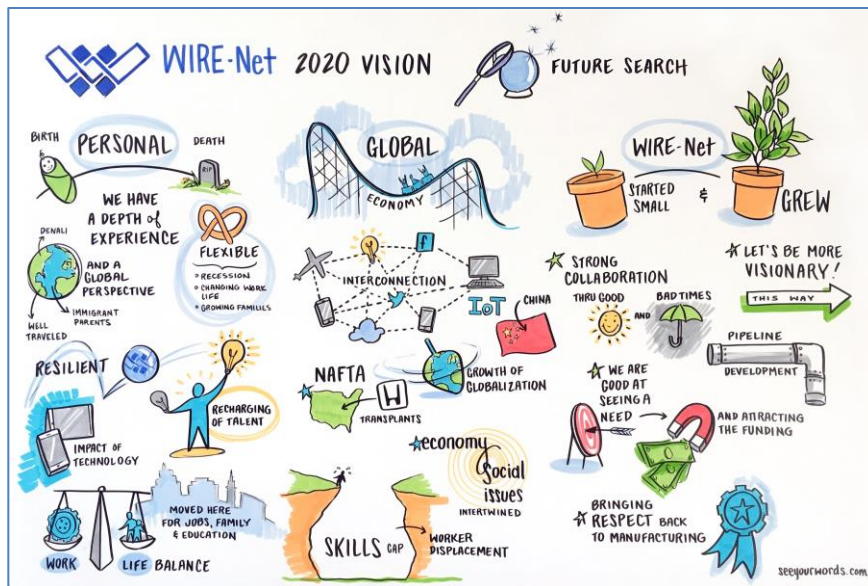 WIRE-Net 2020 VISION
FUTURE SEARCH
BIRTH
PERSONAL
DEATH
RIP
WE HAVE
A DEPTH of
EXPERIENCE
DENALI
AND A
GLOBAL
PERSPECTIVE
IMMIGRANT
PARENTS
WELL
TRAVELED
FLEXIBLE
RECESSION
CHANGING WORK
LIFE
GROWING FAMILIES
RESILIENT
IMPACT OF
TECHNOLOGY
RECHARGING
OF TALENT
MOVED HERE
FOR JOBS, FAMILY
& EDUCATION
WORK
LIFE BALANCE
GLOBAL
ECONOMY
INTERCONNECTION
f
IoT
CHINA
GROWTH OF
GLOBALIZATION
NAFTA
H
TRANSPLANTS
economy
& social
issues
INTERTWINED
SKILLS GAP
WORKER
DISPLACEMENT
WIRE-Net
STARTED
SMALL
&
GREW
STRONG
COLLABORATION
THRU GOOD
AND
BAD TIMES
LET'S BE MORE
VISIONARY!
THIS WAY
PIPELINE
DEVELOPMENT
WE ARE
GOOD AT
SEEING A
NEED
AND ATTRACTING
THE FUNDING
BRINGING
RESPECT BACK
TO MANUFACTURING
seeyourwords.com